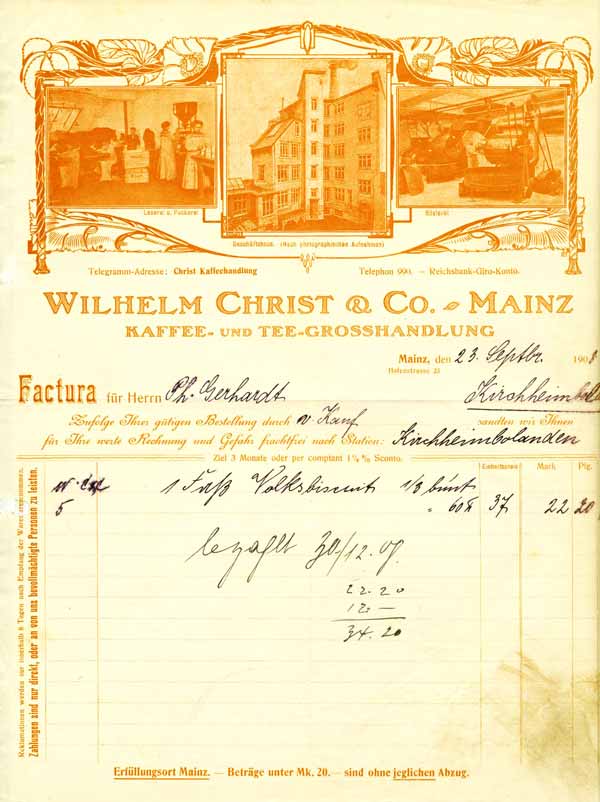 Leserei u. Packerei
Rösterei
Geschäftshaus. (Nach photographischen Aufnahmen)
Telegramm-Adresse: Christ Kaffeehandlung
Telephon 990. — Reichsbank-Giro-Konto.
WILHELM CHRIST & CO. MAINZ
KAFFEE- UND TEE-GROSSHANDLUNG
Mainz, den 23. Septbr. 190
Hafenstrasse 23
Factura für Herrn Ph. Gerhardt Kirchheimbolan
Zufolge Ihrer gütigen Bestellung durch sandten wir Ihnen
für Ihre werte Rechnung und Gefahr frachtfrei nach Station: Kirchheimbolanden
Ziel 3 Monate oder per comptant 1½ % Sconto.
Einheitspreis Mark Pfg.
1 Faß Volksbiscuit 1/3 bunt
5 " 60 ℔ 37 22 20
bezahlt 30/12. 09
22.20
12 —
34.20
Reklamationen werden nur innerhalb 8 Tagen nach Empfang der Waren angenommen.
Zahlungen sind nur direkt, oder an von uns bevollmächtigte Personen zu leisten.
Erfüllungsort Mainz. — Beträge unter Mk. 20.— sind ohne jeglichen Abzug.